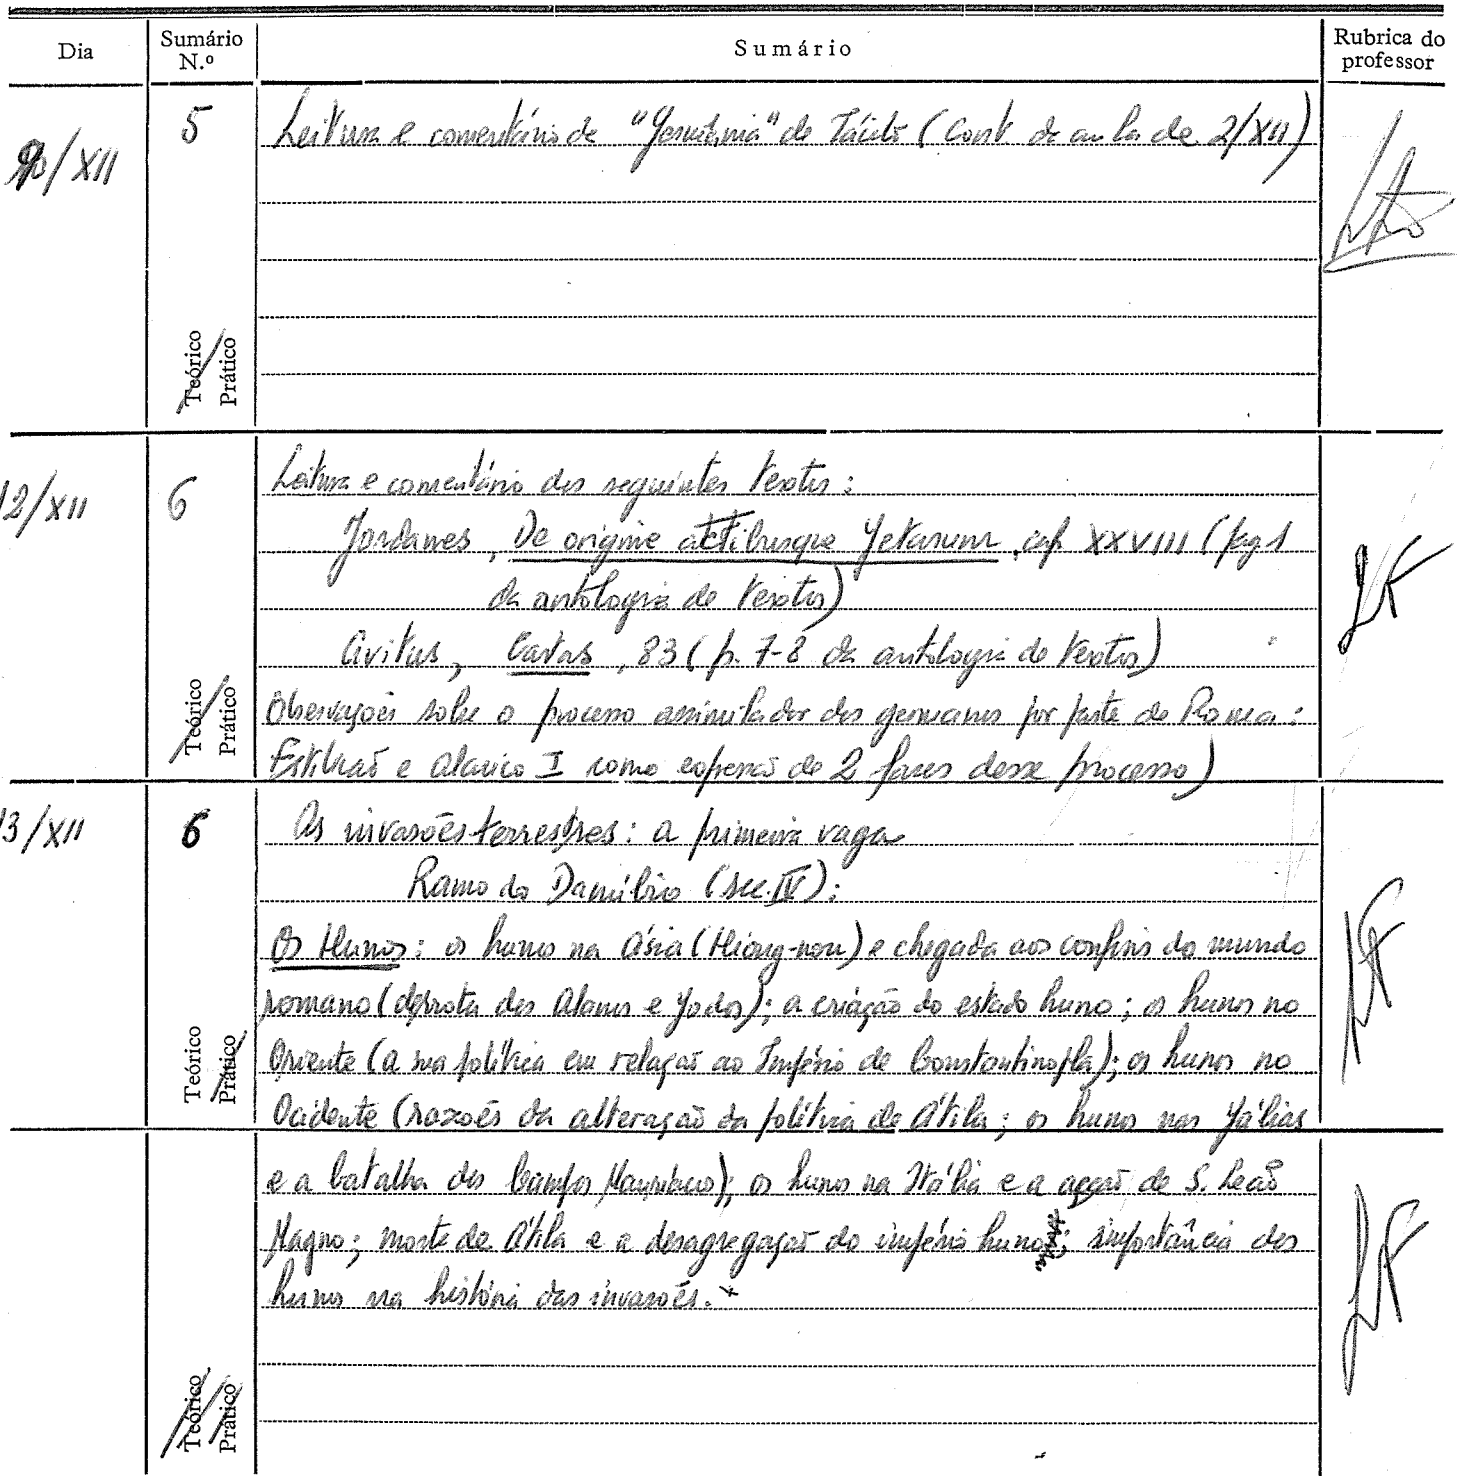 Dia
Sumário N.º
Sumário
Rubrica do professor
/XII
5
Leitura e comentário de "Germânia" de Tácito (Cont da aula de 2/XII)
Teórico
Prático
12/XII
6
Leitura e comentário dos seguintes textos:
Jordanes, De origine actibusque Getarum, cap XXVIII (pag 1
da antologia de textos)
Avitus, Cartas, 83 (p. 7-8 da antologia de textos)
Observações sobre o processo assimilador dos germanos por parte de Roma:
Estilicão e Alarico I como expressão de 2 fases desse processo)
Teórico
Prático
13/XII
6
As invasões terrestres: a primeira vaga
Ramo do Danúbio (sec. IV):
Os Hunos: os hunos na Ásia (Hiong-nou) e chegada aos confins do mundo
romano (derrota dos Alanos e Godos); a criação do estado huno; os hunos no
Oriente (a sua política em relação ao Império de Constantinopla); os hunos no
Ocidente (razões da alteração da política de Átila; os hunos nas Gálias
Teórico
Prático
e a batalha dos Campos Mauriacus); os hunos na Itália e a acção de S. Leão
Magno; morte de Átila e a desagregação do império huno; importância dos
hunos na história das invasões.
Teórico
Prático